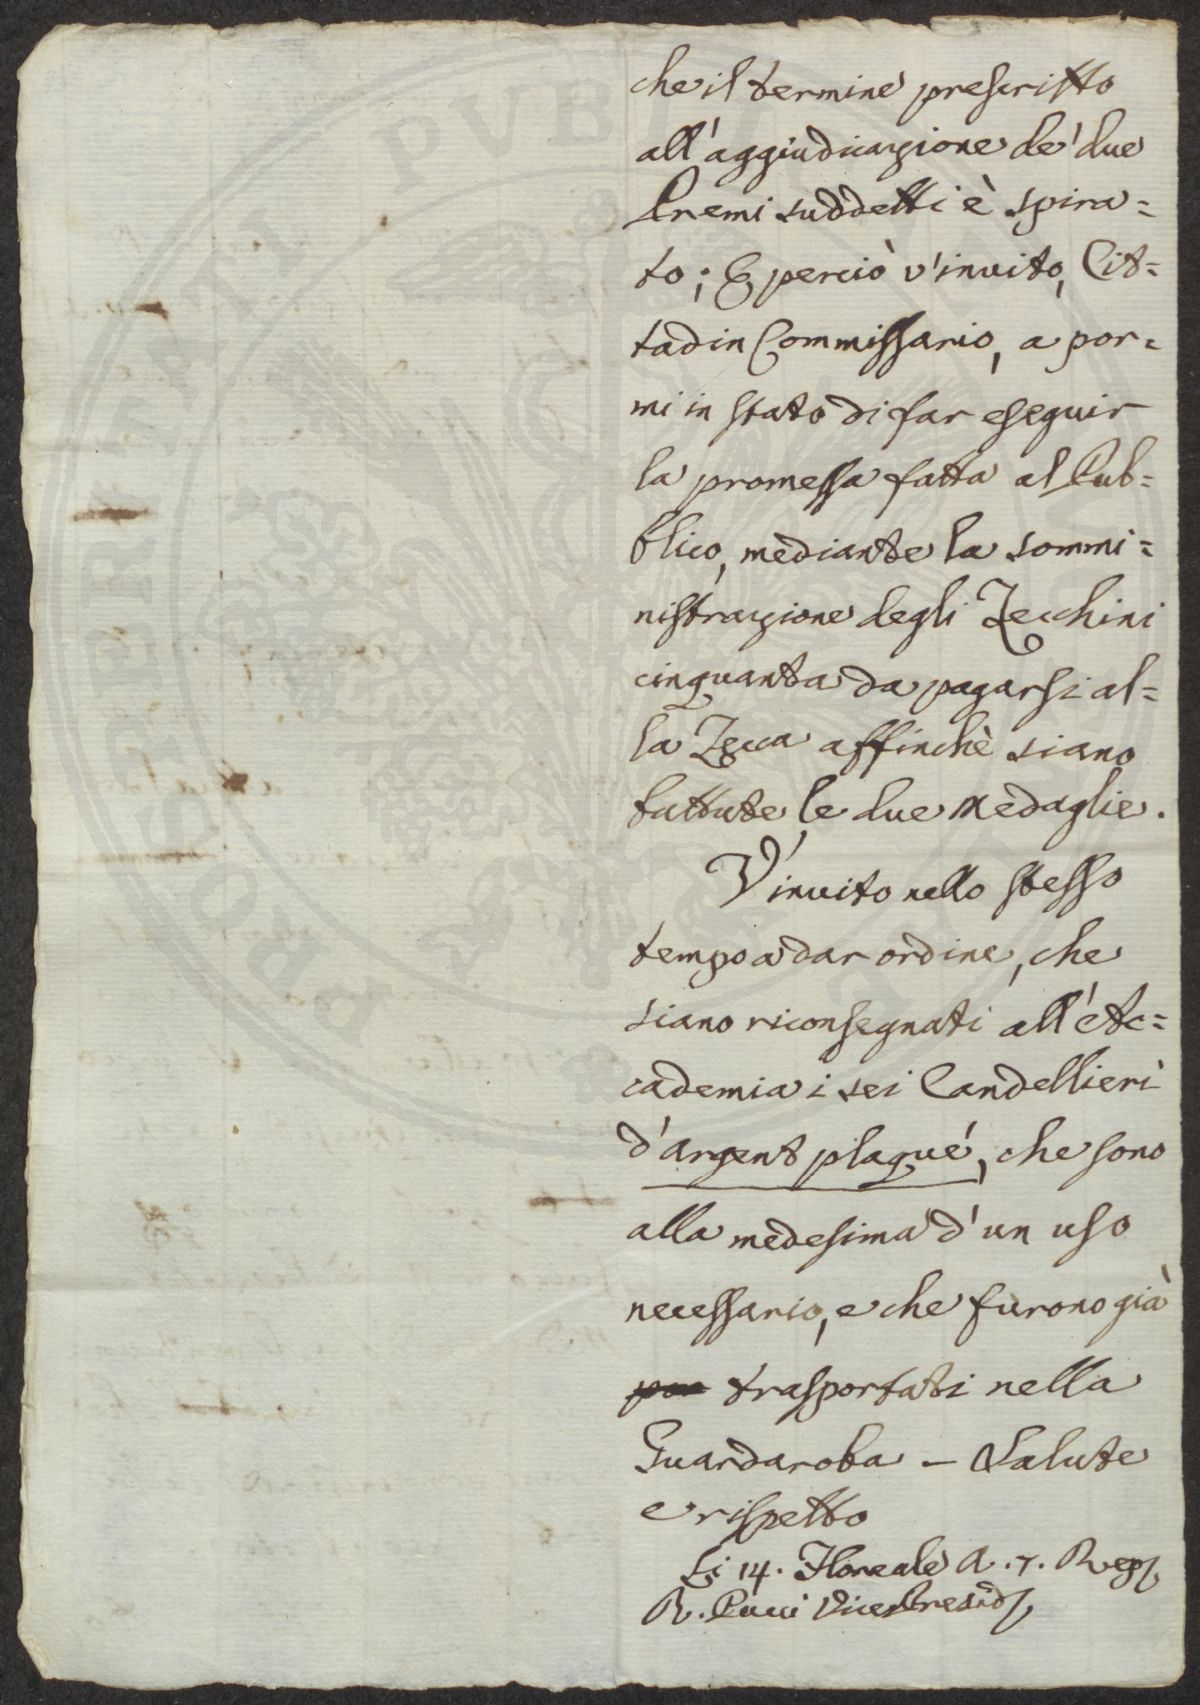 che il termine prescritto
all'aggiudicazione de' due
Premi suddetti è spira=
to; E perciò v'invito, Cit=
tadin Commissario, a por=
mi in stato di far eseguir
la promessa fatta al Pub=
blico, mediante la sommi=
nistrazione degli Zecchini
cinquanta da pagarsi al=
la Zecca affinchè siano
battute le due Medaglie.
V'invito nello stesso
tempo a dar ordine, che
siano riconsegnati all'Ac=
cademia i sei Candellieri
d'argent plaqué, che sono
alla medesima d'un uso
necessario, e che furono già
trasportati nella
Guardaroba – Salute
e rispetto
Li 14. Floreale A. 7. Rep
R. Pucci Vice Presid